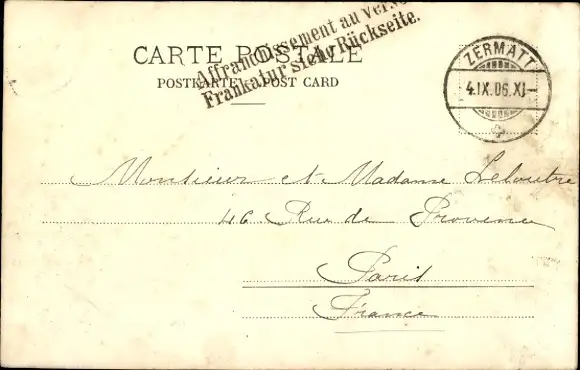 Affranchissement au verso
Frankatur siehe Rückseite.
CARTE POSTALE
POSTKARTE POST CARD
ZERMATT
4.IX.06.XI-
Monsieur et Madame Leloutre
46 Rue de Provence
Paris
France